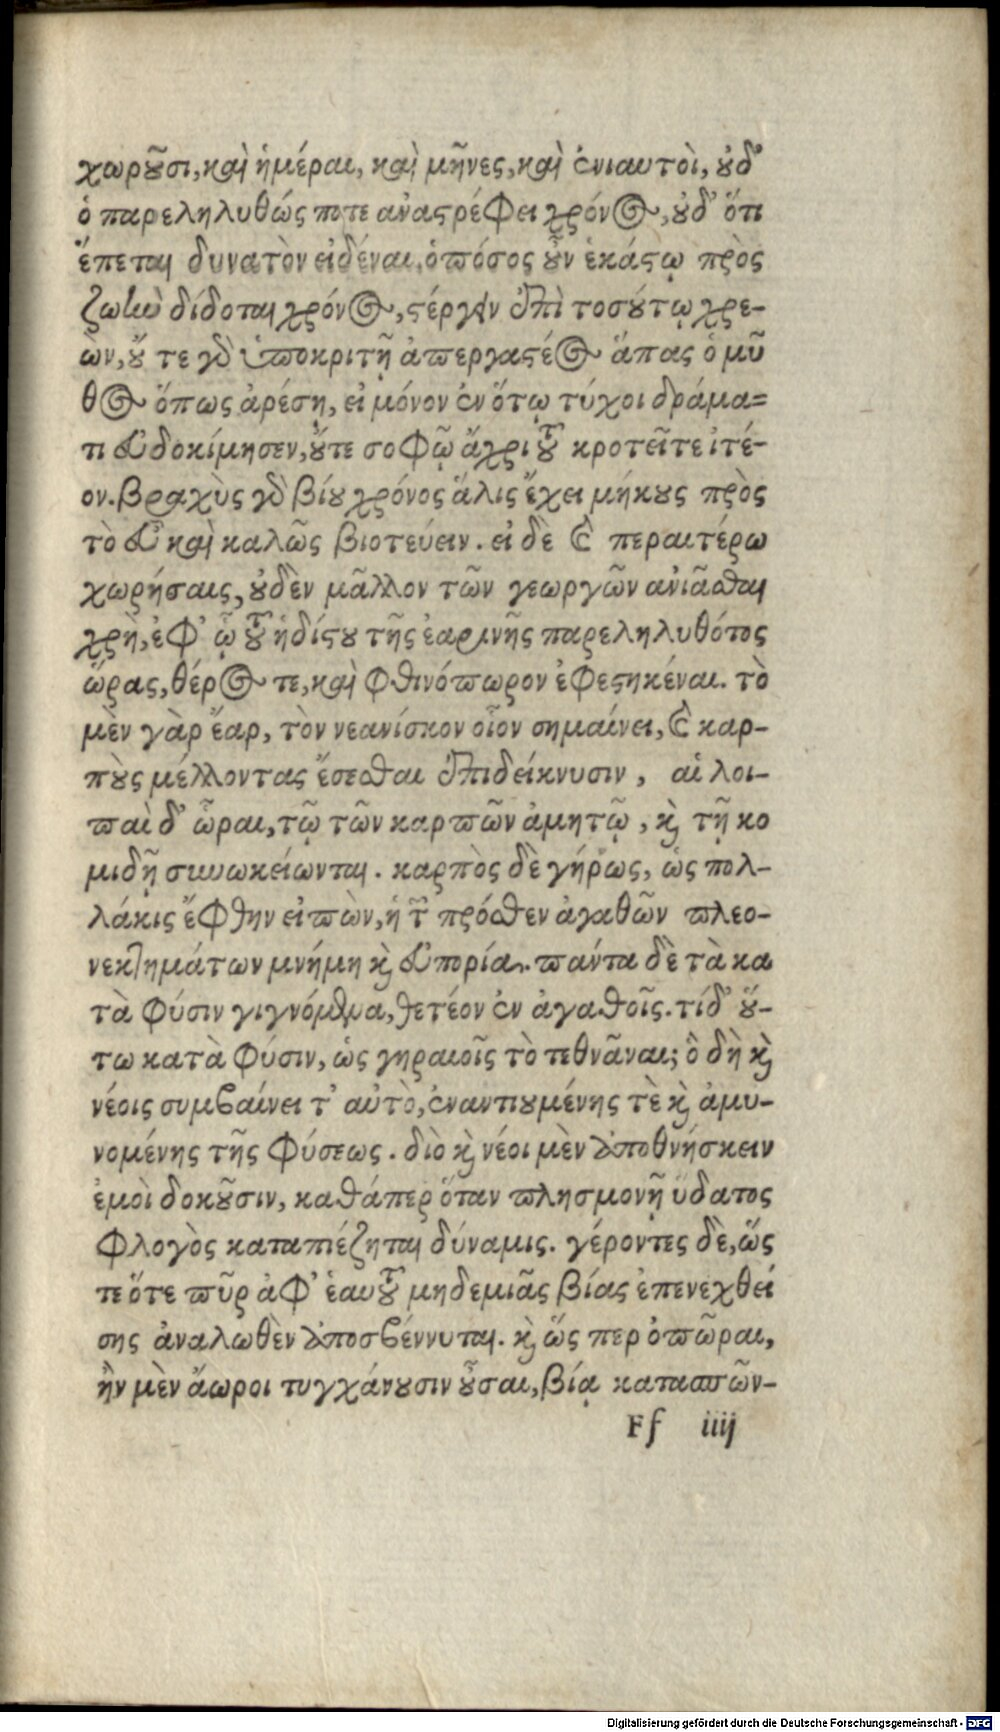 χωροῦσι, καὶ ἡμέραι, καὶ μῆνες, καὶ ἐνιαυτοὶ, οὐδ'
ὁ παρεληλυθώς ποτε ἀναστρέφει χρόνος, οὐδ' ὅτι
ἕπεται δυνατὸν εἰδέναι, ὁπόσος οὖν ἑκάστῳ πρὸς
ζωὴν δίδοται χρόνος, στέργειν ἐπὶ τοσούτῳ χρε-
ὼν, οὔ τε γὰρ ὑποκριτῇ ἀπεργαστέος ἅπας ὁ μῦ
θος ὅπως ἀρέσῃ, εἰ μόνον ἐν ὅτῳ τύχοι δράμα-
τι εὐδοκίμησεν, οὔτε σοφῷ ἄχρι τοῦ κροτεῖτε ἰτέ-
ον. βραχὺς γὰρ βίου χρόνος ἅλις ἔχει μήκους πρὸς
τὸ εὖ καὶ καλῶς βιοτεύειν. εἰ δὲ καὶ περαιτέρω
χωρήσαις, οὐδὲν μᾶλλον τῶν γεωργῶν ἀνιᾶσθαι
χρὴ, ἐφ' ᾧ τοῦ ἡδίστου τῆς ἐαρινῆς παρεληλυθότος
ὥρας, θέρος τε, καὶ φθινόπωρον ἐφεστηκέναι. τὸ
μὲν γὰρ ἔαρ, τὸν νεανίσκον οἷον σημαίνει, καὶ καρ-
ποὺς μέλλοντας ἔσεσθαι ἐπιδείκνυσιν, αἱ λοι-
παὶ δ' ὧραι, τῷ τῶν καρπῶν ἀμητῷ, καὶ τῇ κο
μιδῇ συνῳκείωνται. καρπὸς δὲ γήρως, ὡς πολ-
λάκις ἔφθην εἰπὼν, ἡ τῶν πρόσθεν ἀγαθῶν πλεο-
νεκτημάτων μνήμη καὶ εὐπορία. πάντα δὲ τὰ κα
τὰ φύσιν γιγνόμενα, θετέον ἐν ἀγαθοῖς. τί δ' οὕ-
τω κατὰ φύσιν, ὡς γηραιοῖς τὸ τεθνᾶναι; ὃ δὴ καὶ
νέοις συμβαίνει τ' αὐτὸ, ἐναντιουμένης τὲ καὶ ἀμυ-
νομένης τῆς φύσεως. διὸ καὶ νέοι μὲν ἀποθνήσκειν
ἐμοὶ δοκοῦσιν, καθάπερ ὅταν πλησμονῇ ὕδατος
φλογὸς καταπιέζηται δύναμις. γέροντες δὲ, ὥς
τε ὅτε πῦρ ἀφ' ἑαυτοῦ μηδεμιᾶς βίας ἐπενεχθεί
σης ἀναλωθὲν ἀποσβέννυται. καὶ ὥς περ ὀπῶραι,
ἢν μὲν ἄωροι τυγχάνουσιν οὖσαι, βίᾳ κατασπῶν-
Ff iiij
Digitalisierung gefördert durch die Deutsche Forschungsgemeinschaft - DFG